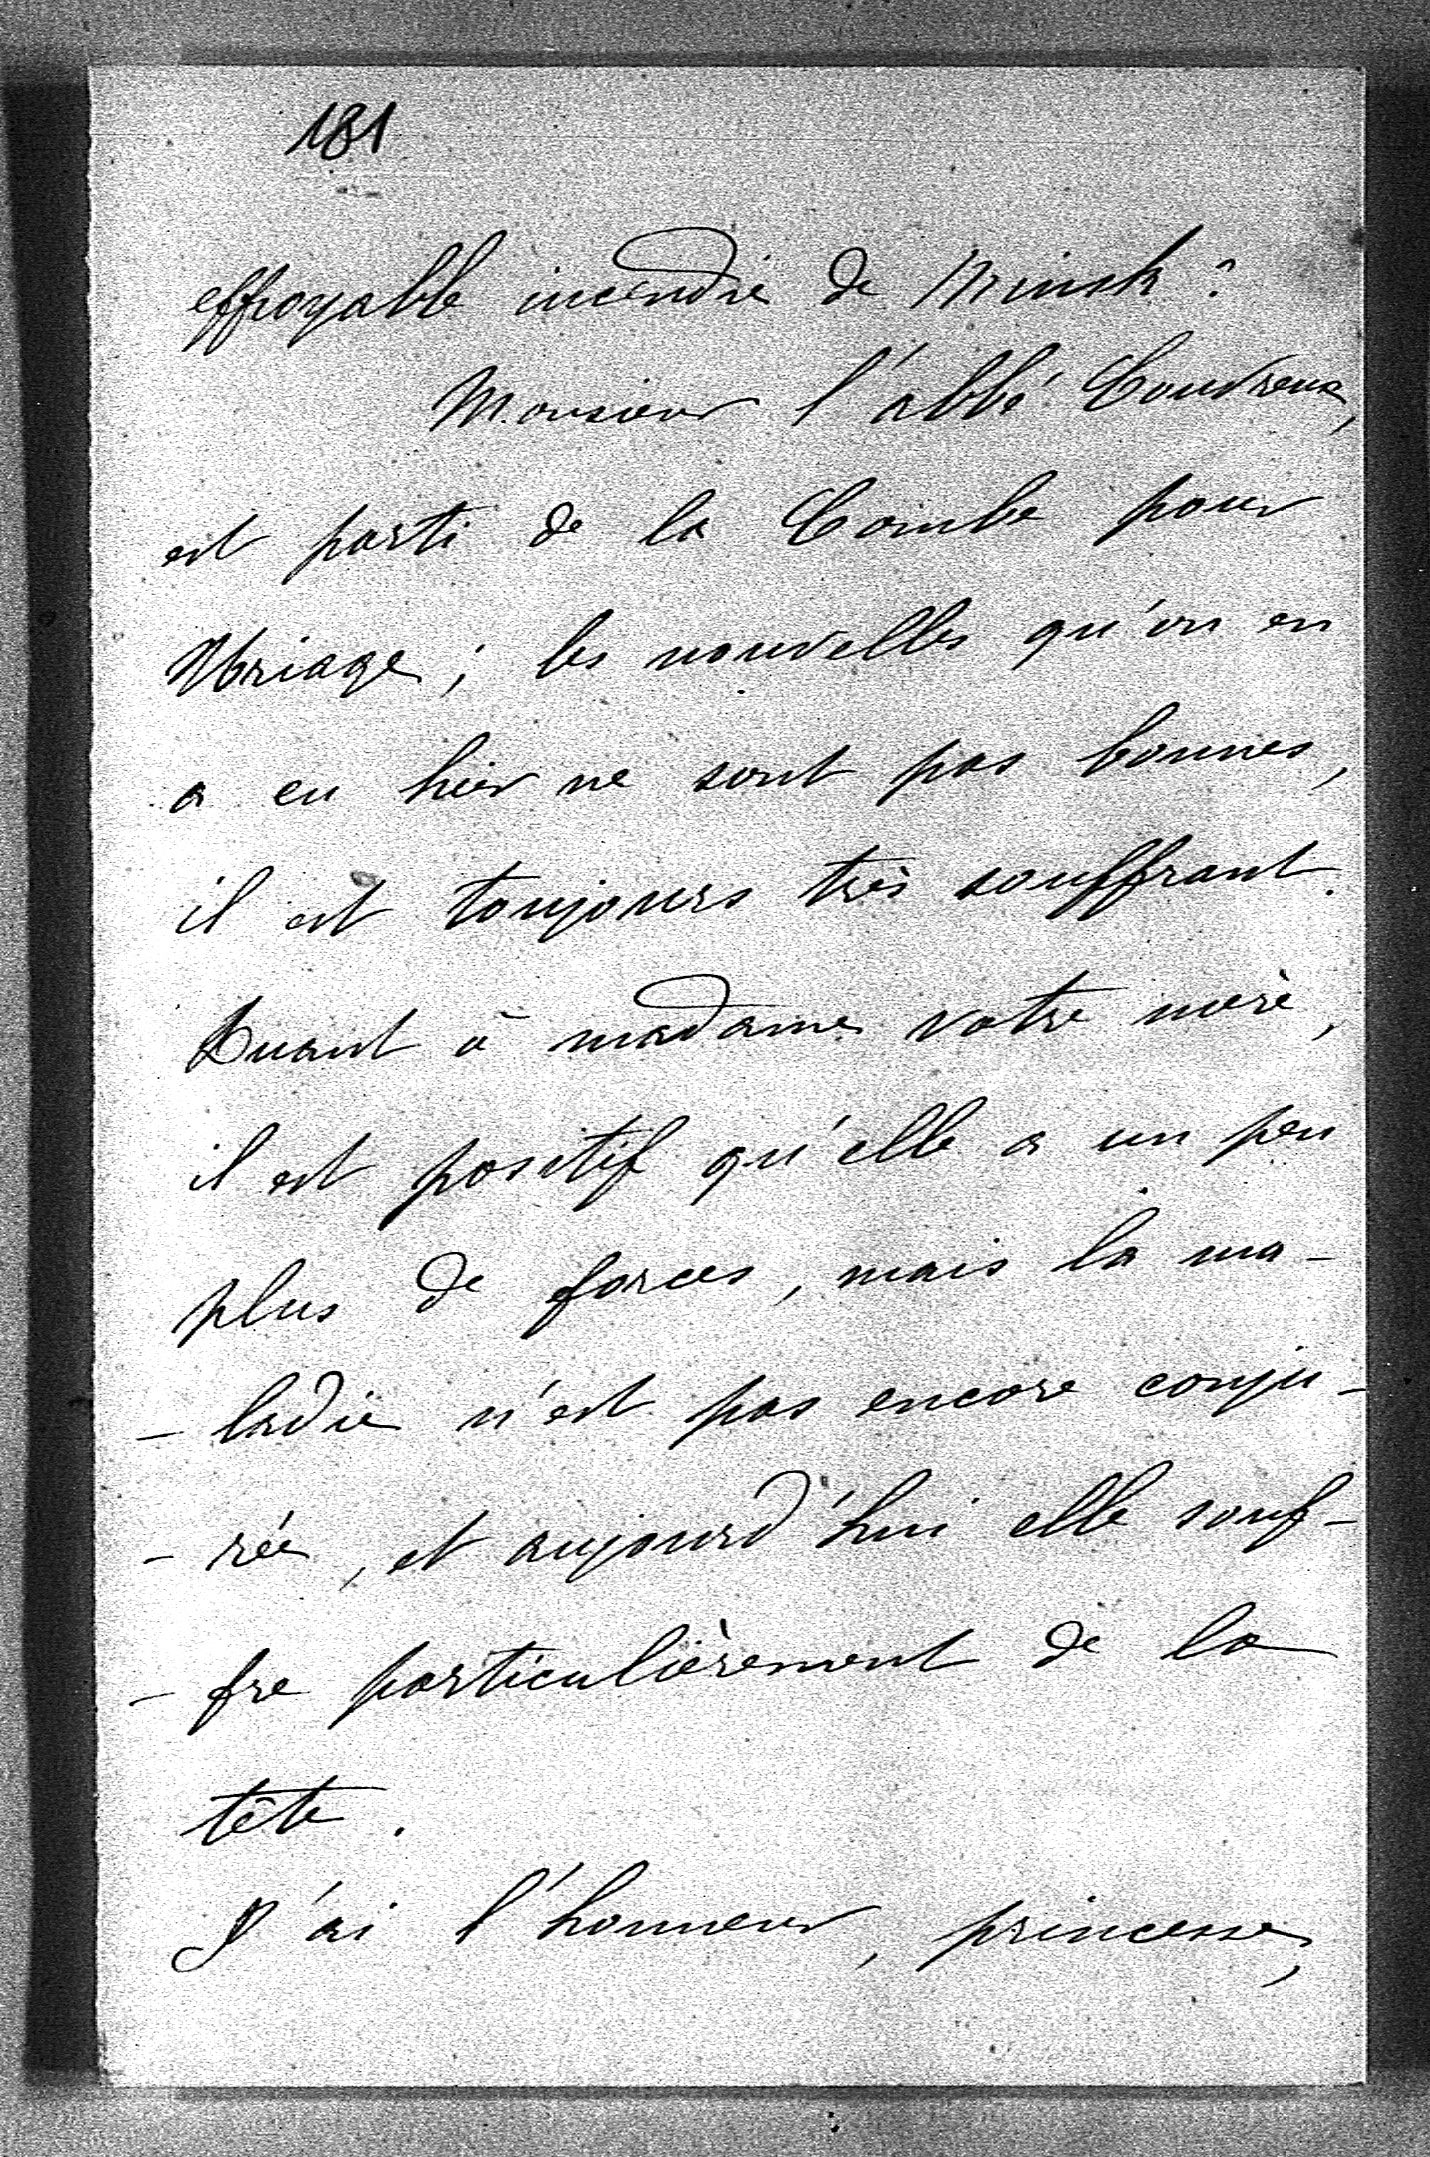 181
effroyable incendie de Minsk?
Monsieur l'abbé Couvreux,
est parti de la Combe pour
Uriage; les nouvelles qu'on en
a eu hier ne sont pas bonnes,
il est toujours très souffrant.
Quant à madame votre mère,
il est positif qu'elle a un peu
plus de forces, mais la ma-
- ladie n'est pas encore conju-
- rée, et aujourd'hui elle souf-
- fre particulièrement de la
tête.
J'ai l'honneur, princesse,